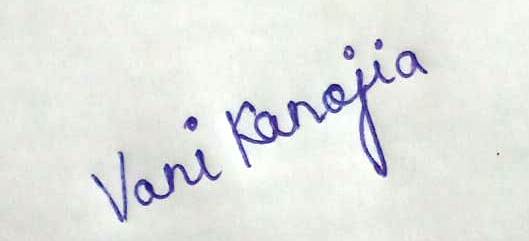 Vani Kanojia